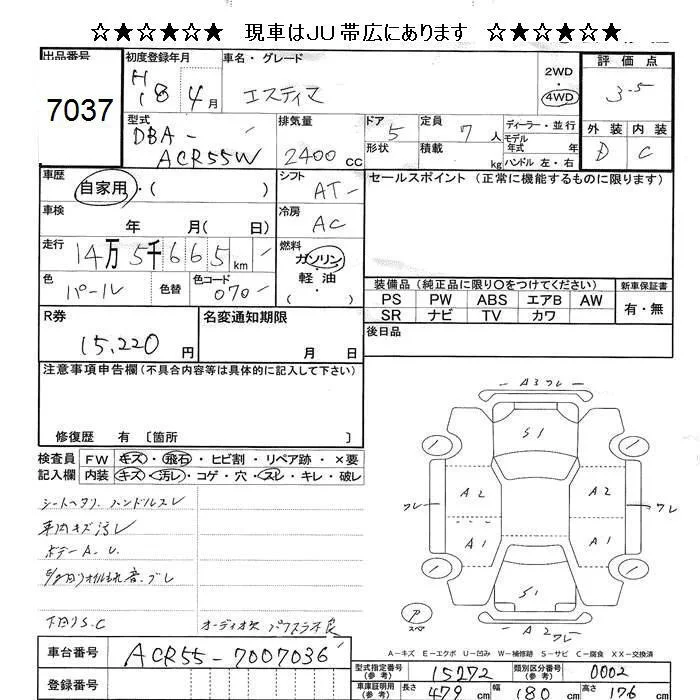 ☆★☆★☆★ 現車はJU帯広にあります ☆★☆★☆★
出品番号 初度登録年月 車名・グレード 評価点
7037 H18年4月 エスティマ 2WD 4WD 3.5
型式 DBA-ACR55W 排気量 2400cc ドア 5 定員 7人 ディーラー・並行 外装 内装
形状 積載 kg モデル年式 年 ハンドル 左・右 D C
車歴 自家用・( ) シフト AT セールスポイント (正常に機能するものに限ります)
車検 年 月( 日) 冷房 AC
走行 14万5千665km 燃料 ガソリン・軽油
色 パール 色替 色コード 070 装備品 (純正品に限り○をつけてください) 新車保証書
PS PW ABS エアB AW 有・無
SR ナビ TV カワ
R券 15,220円 名変通知期限 月 日 後日品
注意事項申告欄(不具合内容等は具体的に記入して下さい)
修復歴 有 〔箇所 〕
検査員 FW キズ・飛石・ヒビ割・リペア跡・×要
記入欄 内装 キズ・汚レ・コゲ・穴・スレ・キレ・破レ
シートヘタリ ハンドルスレ
車内キズ汚レ
ボデーA.U.
下回りS.C オーディオ欠
A3 ワレ
S1
A2 A2
ワレ ワレ
A1 A1
S1
P スペア
A2 ワレ
A-キズ E-エクボ U-凹み W-補修跡 S-サビ C-腐食 XX-交換済
車台番号 ACR55-7007036 型式指定番号(参考) 15272 類別区分番号(参考) 0002
登録番号 車庫証明用(参考) 長さ 479cm 幅 180cm 高さ 176cm